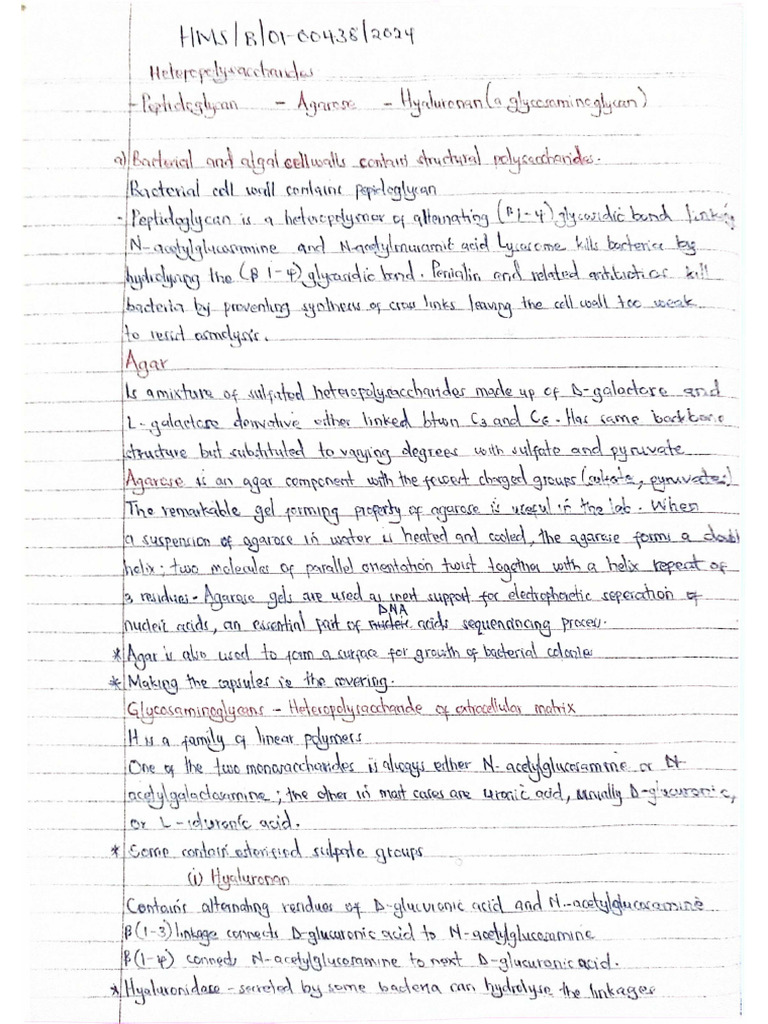 HMS/B/01-00438/2024
Heteropolysaccharides
- Peptidoglycan - Agarose - Hyaluronan (a glycosaminoglycan)
a) Bacterial and algal cell walls contain structural polysaccharides.
Bacterial cell wall contains peptidoglycan
- Peptidoglycan is a heteropolymer of alternating (β1-4) glycosidic bond linking
N-acetylglucosamine and N-acetylmuramic acid Lysosome kills bacteria by
hydrolying the (β 1-4) glycosidic bond. Penicilin and related antibiotics kill
bacteria by preventing synthesis of cross links leaving the cell wall too weak
to resist osmolysis.
Agar
Is a mixture of sulfated heteropolysaccharides made up of D-galactose and
L-galactose derivative either linked btwn C3 and C6. Has same backbone
structure but substituted to varying degrees with sulfate and pyruvate
Agarose is an agar component with the fewest charged groups (sulfate, pyruvates)
The remarkable gel forming property of agarose is useful in the lab. When
a suspension of agarose in water is heated and cooled, the agarose forms a doubl
helix; two molecules of parallel orientation twist together with a helix repeat of
3 residues - Agarose gels are used as inert support for electrophoretic seperation of
nucleic acids, an essential part of nucleic DNA acids sequencincing process.
* Agar is also used to form a surface for growth of bacterial colonies
* Making the capsules ie the covering.
Glycosaminoglycans - Heteropolysaccharide of extracellular matrix
It is a family of linear polymers
One of the two monosaccharides is always either N-acetylglucosamine or N-
acetylgalactosamine; the other in most cases are uronic acid, usually D-glucuronic,
or L-iduronic acid.
* Some contain esterified sulpate groups
(i) Hyaluronan
Contains alternating residues of D-glucuronic acid and N-acetylglucosamine
β(1-3) linkage connects D-glucuronic acid to N-acetylglucosamine
β(1-4) connects N-acetylglucosamine to next D-glucuronic acid.
* Hyaluronidase - secreted by some bacteria can hydrolyse the linkages